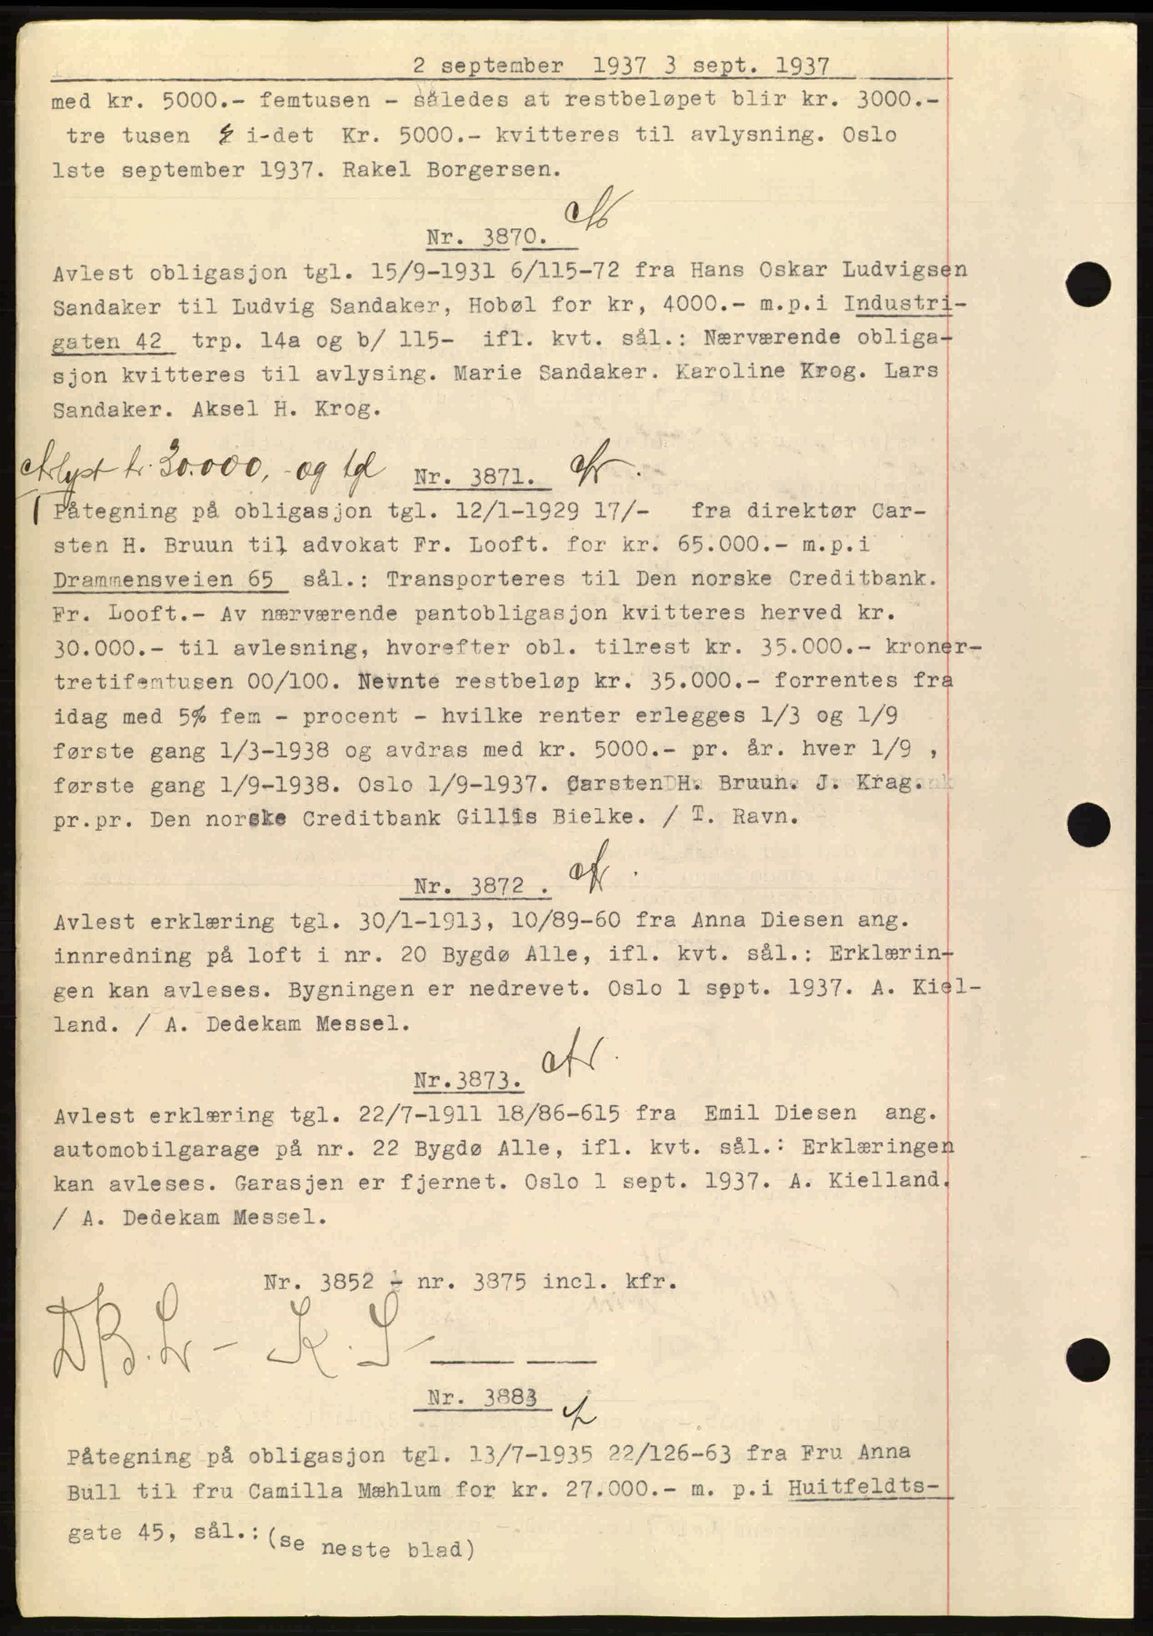 2 september 1937 3 sept. 1937
med kr. 5000.- femtusen - således at restbeløpet blir kr. 3000.-
tre tusen i-det Kr. 5000.- kvitteres til avlysning. Oslo
1ste september 1937. Rakel Borgersen.
Nr. 3870.
Avlest obligasjon tgl. 15/9-1931 6/115-72 fra Hans Oskar Ludvigsen
Sandaker til Ludvig Sandaker, Hobøl for kr, 4000.- m.p.i Industri-
gaten 42 trp. 14a og b/ 115- ifl. kvt. sål.: Nærværende obliga-
sjon kvitteres til avlysing. Marie Sandaker. Karoline Krog. Lars
Sandaker. Aksel H. Krog.
Avlyst kr. 30.000,- og tgl Nr. 3871.
Påtegning på obligasjon tgl. 12/1-1929 17/- fra direktør Car-
sten H. Bruun til advokat Fr. Looft. for kr. 65.000.- m.p.i
Drammensveien 65 sål.: Transporteres til Den norske Creditbank.
Fr. Looft.- Av nærværende pantobligasjon kvitteres herved kr.
30.000.- til avlesning, hvorefter obl. tilrest kr. 35.000.- kroner-
tretifemtusen 00/100. Nevnte restbeløp kr. 35.000.- forrentes fra
idag med 5% fem - procent - hvilke renter erlegges 1/3 og 1/9
første gang 1/3-1938 og avdras med kr. 5000.- pr. år. hver 1/9 ,
første gang 1/9-1938. Oslo 1/9-1937. Carsten H. Bruun. J. Krag.
pr.pr. Den norske Creditbank Gillis Bielke. / T. Ravn.
Nr. 3872 .
Avlest erklæring tgl. 30/1-1913, 10/89-60 fra Anna Diesen ang.
innredning på loft i nr. 20 Bygdø Alle, ifl. kvt. sål.: Erklærin-
gen kan avleses. Bygningen er nedrevet. Oslo 1 sept. 1937. A. Kiel-
land. / A. Dedekam Messel.
Nr.3873.
Avlest erklæring tgl. 22/7-1911 18/86-615 fra Emil Diesen ang.
automobilgarage på nr. 22 Bygdø Alle, ifl. kvt. sål.: Erklæringen
kan avleses. Garasjen er fjernet. Oslo 1 sept. 1937. A. Kielland.
/ A. Dedekam Messel.
Nr. 3852 - nr. 3875 incl. kfr.
Nr. 3883
Påtegning på obligasjon tgl. 13/7-1935 22/126-63 fra Fru Anna
Bull til fru Camilla Mæhlum for kr. 27.000.- m. p.i Huitfeldts-
gate 45, sål.: (se neste blad)